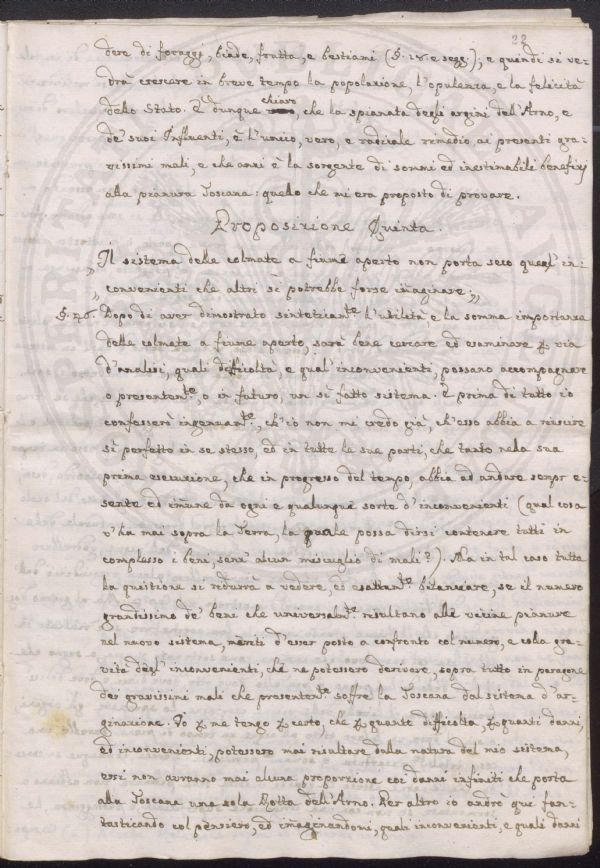 22
dere di foraggi, biade, frutta, e bestiami (§. 18. e segg:), e quindi si ve-
drà crescere in breve tempo la popolazione, l'opulenza, e la felicità
dello Stato. È dunque chiaro, che la spianata degli argini dell'Arno, e
de' suoi Influenti, è l'unico, vero, e radicale rimedio, ai presenti gra-
vissimi mali, e che anzi è la sorgente di sommi ed inestimabili benefizj
alla pianura Toscana: quello che mi era proposto di provare.
Proposizione Quinta.
„ Il sistema delle colmate a fiume aperto non porta seco quegl' in-
„ convenienti che altri si potrebbe forse imaginare. „
§. 26. Dopo di aver dimostrato sinteticam.te l'utilità, e la somma importanza
delle colmate a fiume aperto, sarà bene cercare ed esaminare p via
d'analisi, quali difficoltà, e qual' inconvenienti, possano accompagnare
o presentem.te, o in futuro, un sì fatto sistema. E prima di tutto io
confesserò ingenuam.te, ch'io non mi credo già, ch'esso abbia a riuscire
sì perfetto in se stesso, ed in tutte le sue parti, che tanto nella sua
prima esecuzione, che in progresso del tempo, abbia ad andare sempr e-
sente ed im̃une da ogni e qualunque sorte d'inconvenienti (qual cosa
v'ha mai sopra la Terra, la quale possa dirsi contenere tutti in
complesso i beni, senz' alcun miscuglio di mali?). Ma in tal caso tutta
la quistione si ridurrà a vedere, ed esattam.te bilanciare, se il numero
grandissimo de' beni che universalm.te risultano alle vicine pianure
nel nuovo sistema, meriti d'esser posto a confronto col numero, e colla gra-
vità degl' inconvenienti, che ne potessero derivare, sopra tutto in paragone
dei gravissimi mali che presentem.te soffre la Toscana dal sistema d'ar-
ginazione. Io p me tengo p certo, che p quante difficoltà, p quanti danni,
ed inconvenienti, potessero mai risultare dalla natura del mio sistema,
essi non avranno mai alcuna proporzione coi danni infiniti che porta
alla Toscana una sola Rotta dell'Arno. Per altro io andrò quì fan-
tasticando col pensiero, ed im̃aginandomi, quali inconvenienti, e quali danni